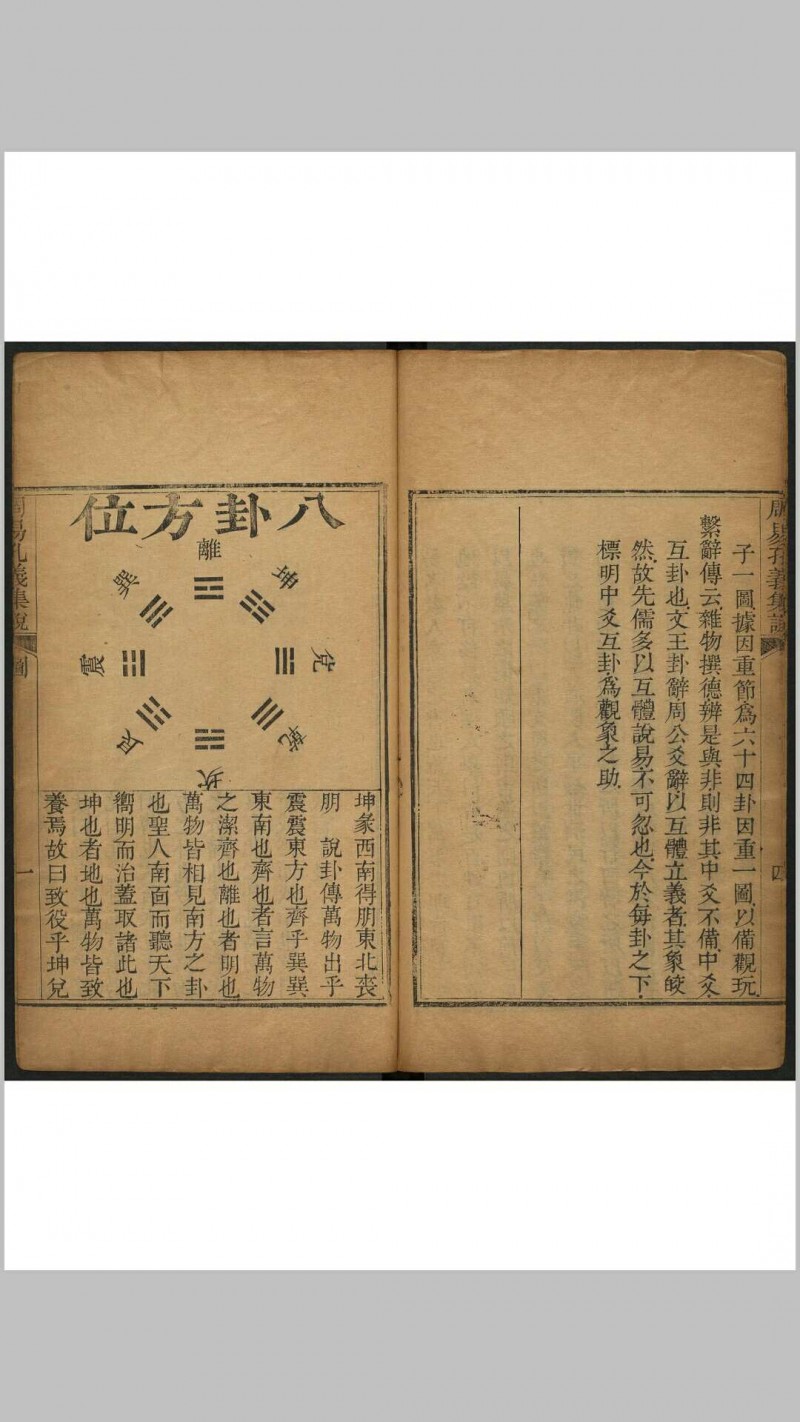 周易孔義集說
四
子一圖據因重節爲六十四卦因重一圖以備觀玩
繫辭傳云雜物撰德辨是與非則非其中爻不備中爻
互卦也文王卦辭周公爻辭以互體立義者其象皎
然故先儒多以互體說易不可忽也今於每卦之下
標明中爻互卦爲觀象之助
八卦方位
離
坤
兌
乾
坎
艮
震
巽
坤彖西南得朋東北喪
朋 說卦傳萬物出乎
震震東方也齊乎巽巽
東南也齊也者言萬物
之潔齊也離也者明也
萬物皆相見南方之卦
也聖人南面而聽天下
嚮明而治蓋取諸此也
坤也者地也萬物皆致
養焉故曰致役乎坤兌
周易孔義集說
圖
一